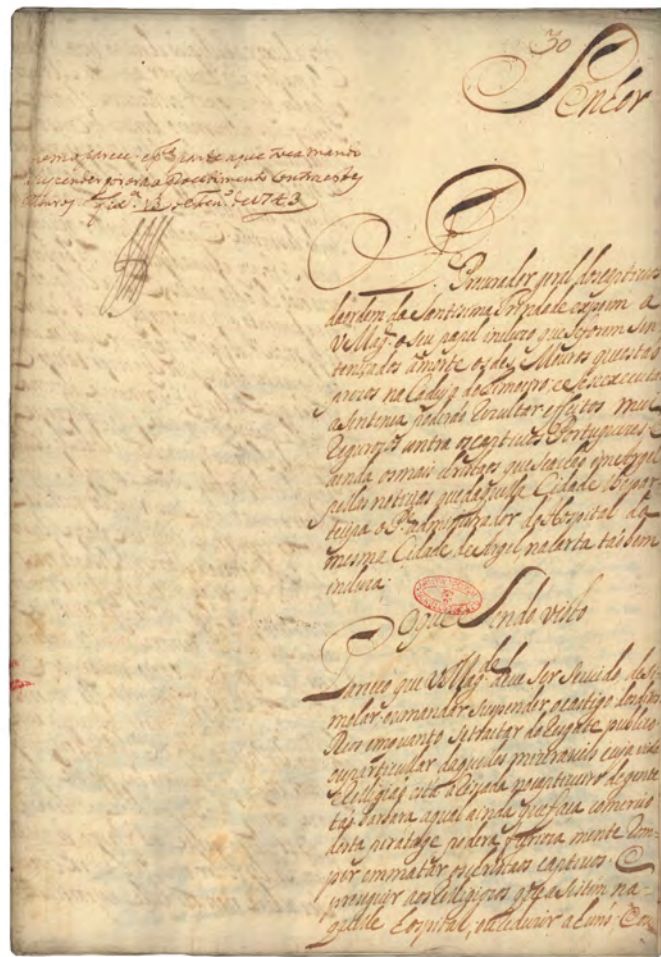 30
Senhor
como parece e pª parte a que toca mando
suspender por ora o procedimento contra estes
Mouros. Lxª 13 de Jenrº de 1743
O Procurador geral dos captivos
da ordem da Santissima Trindade expoem a
V Magᵉ o seu papel incluzo que se forem sin
tenciados a morte os des Mouros que estaõ
prezos na Cadeya do Limoeiro, e se se executar
a sentença poderaõ rezultar effeitos mui
rigurozos contra os captivos Portuguezes, e
ainda os mais christaos que se achaõ em Argel
pellas noticias que daquella Cidade lhe par
ticipa o Pᵉ administrador do Hospital da
mesma Cidade de Argel na carta taõbem
incluza.
O que Sendo visto
Pareceo que V Magᵈᵉ deve ser servido, desi
molar, ou mandar suspender o castigo
Reos emquanto se trattar do Resgate publico
ou particular daquelles mizeraveis cuja vida
e Religiaõ está arriscada no captiveiro de gente
taõ barbara a qual ainda que faça comercio
desta piratage poderá furiosa mente rom-
per em matar os christaos captivos. E
proseguir aos Religiosos que assistem na-
quelle hospital, ou reduzir a huns, e